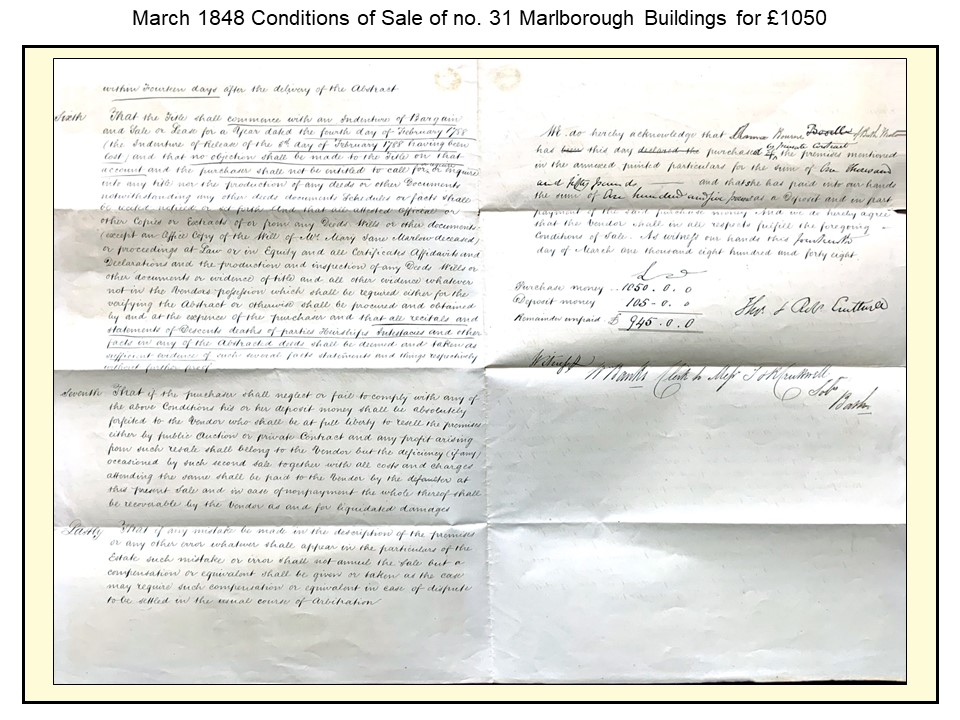 March 1848 Conditions of Sale of no. 31 Marlborough Buildings for £1050
within Fourteen days after the delivery of the Abstract
Sixth That the Title shall commence with an Indenture of Bargain
and Sale or Lease for a Year dated the fourth day of February 1788
(the Indenture of Release of the 5th day of February 1788 having been
Lost) and that no objection shall be made to the Title on that
account and the purchaser shall not be entitled to call for or inquire
into any title nor the production of any deeds or other Documents
notwithstanding any other deeds documents Schedules or facts shall
be recited noticed or set forth And that all attested Official or
other Copies or Extracts of or from any Deeds Wills or other documents
(except an Office Copy of the Will of Mrs Mary Jane Marlow deceased)
or proceedings at Law or in Equity and all Certificates Affidavits and
Declarations and the production and inspection of any Deeds Wills or
other documents or evidence of title and all other evidence whatever
not in the Vendors possession which shall be required either for the
verifying the Abstract or otherwise shall be procured and obtained
by and at the expence of the purchaser and that all recitals and
statements of Descents deaths of parties Heirships Intestacies and other
facts in any of the Abstracted deeds shall be deemed and taken as
sufficient evidence of such several facts statements and things respectively
without further proof
Seventh That if the purchaser shall neglect or fail to comply with any of
the above Conditions his or her deposit money shall be absolutely
forfeited to the Vendor who shall be at full liberty to resell the premises
either by public Auction or private Contract and any profit arising
from such resale shall belong to the Vendor but the deficiency (if any)
occasioned by such second sale together with all costs and charges
attending the same shall be paid to the Vendor by the defaulter at
this present Sale and in case of nonpayment the whole thereof shall
be recoverable by the Vendor as and for liquidated damages
Lastly That if any mistake be made in the description of the premises
or any other error whatever shall appear in the particulars of the
Estate such mistake or error shall not annul the Sale but a
compensation or equivalent shall be given or taken as the case
may require such compensation or equivalent in case of dispute
to be settled in the usual course of Arbitration
We do hereby acknowledge that Bourne of Bath
by private Contract
has been this day declared the purchased the premises mentioned
in the annexed printed particulars for the sum of One thousand
and fifty pounds and that she has paid into our hands
the sum of One hundred and five pounds as a Deposit and in part
payment of the said purchase money And we do hereby agree
that the Vendor shall in all respects fulfill the foregoing
Conditions of Sale. As witness our hands this fourteenth
day of March one thousand eight hundred and forty eight.
£ s d
Purchase money .. 1050 . 0 . 0
Deposit money 105 - 0 . 0
Remainder unpaid £ 945 . 0 . 0
Thos. & Robt Cruttwell
Witness W Banks Clerk to Messrs T & R Cruttwell
Solrs
Bath